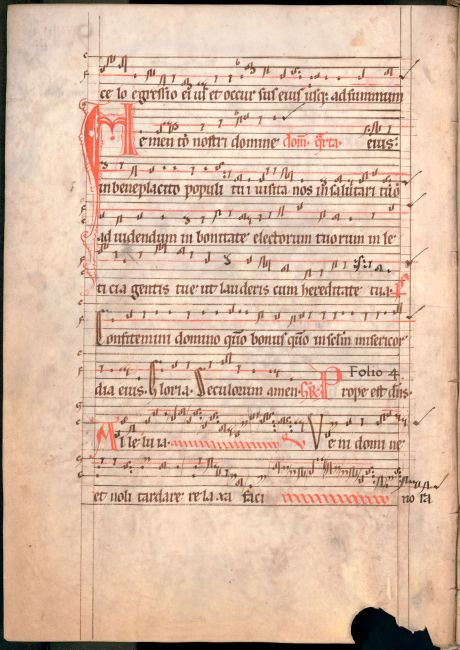 ce lo egressio ei' ul' et occur sus eius usq; ad summum
Me men to nostri domine dom̄ q̄rta. eius:
in beneplacito populi tu i uisita nos in salutari tuo
ad uidendum in bonitate electorum tuorum in le
ti cia gentis tue ut lauderis cum hereditate tua. P
Confitemini domino q̄o bonus q̄o in sc̄lm misericor
Folio 4.
dia eius. Gloria. Seculorum amen. Gr̄. Prope est dn̄s
Al le lu ia. Ve ni domi ne
et noli tardare re la xa faci no ra